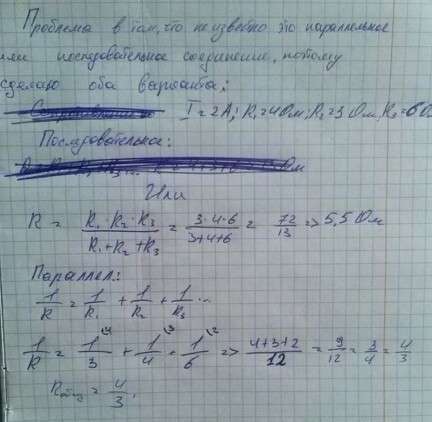 Проблема в том, что не известно это параллельное
или последовательное соединение, поэтому
сделаю оба варианта:
I = 2А; R₁=4Ом; R₂=3 Ом, R₃=6О
Последовательное:
Или
R = R₁·R₂·R₃ / R₁+R₂+R₃ = 3·4·6 / 3+4+6 = 72/13 => 5,5 Ом
Параллел:
1/R = 1/R₁ + 1/R₂ + 1/R₃ ...
1/R = 1/3 ⁽⁴ + 1/4 ⁽³ + 1/6 ⁽² => 4+3+2/12 = 9/12 = 3/4 = 4/3
Rобщ = 4/3.